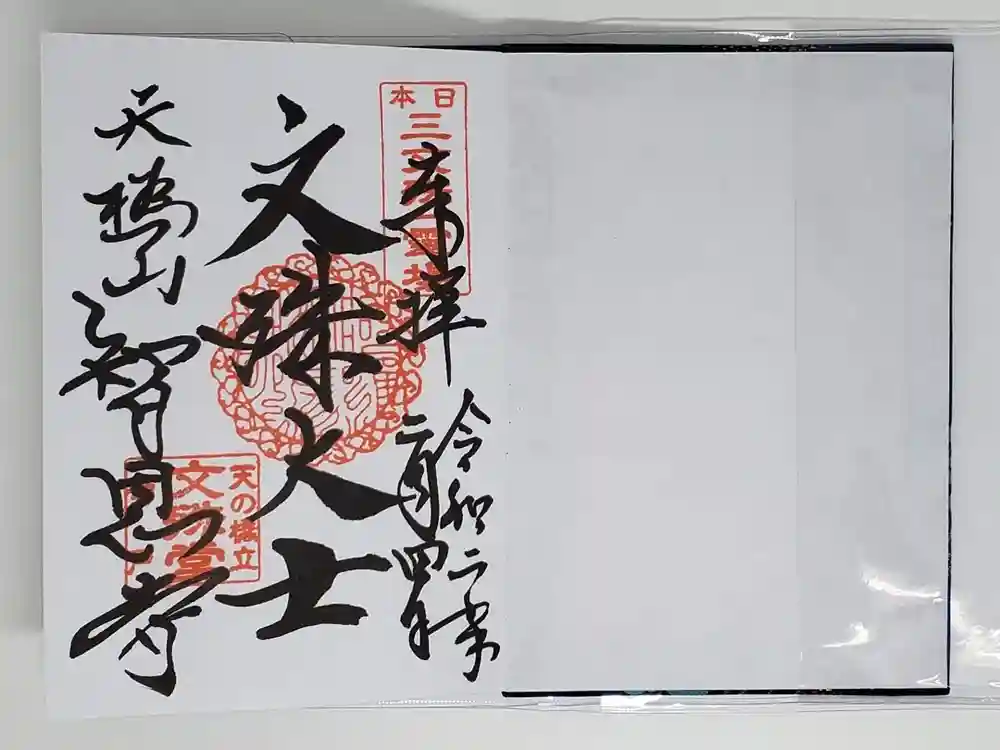 奉拝
令和二年
二月四日
文殊大士
天橋山智恩寺
日本
三文殊
霊場
天の橋立
文殊堂